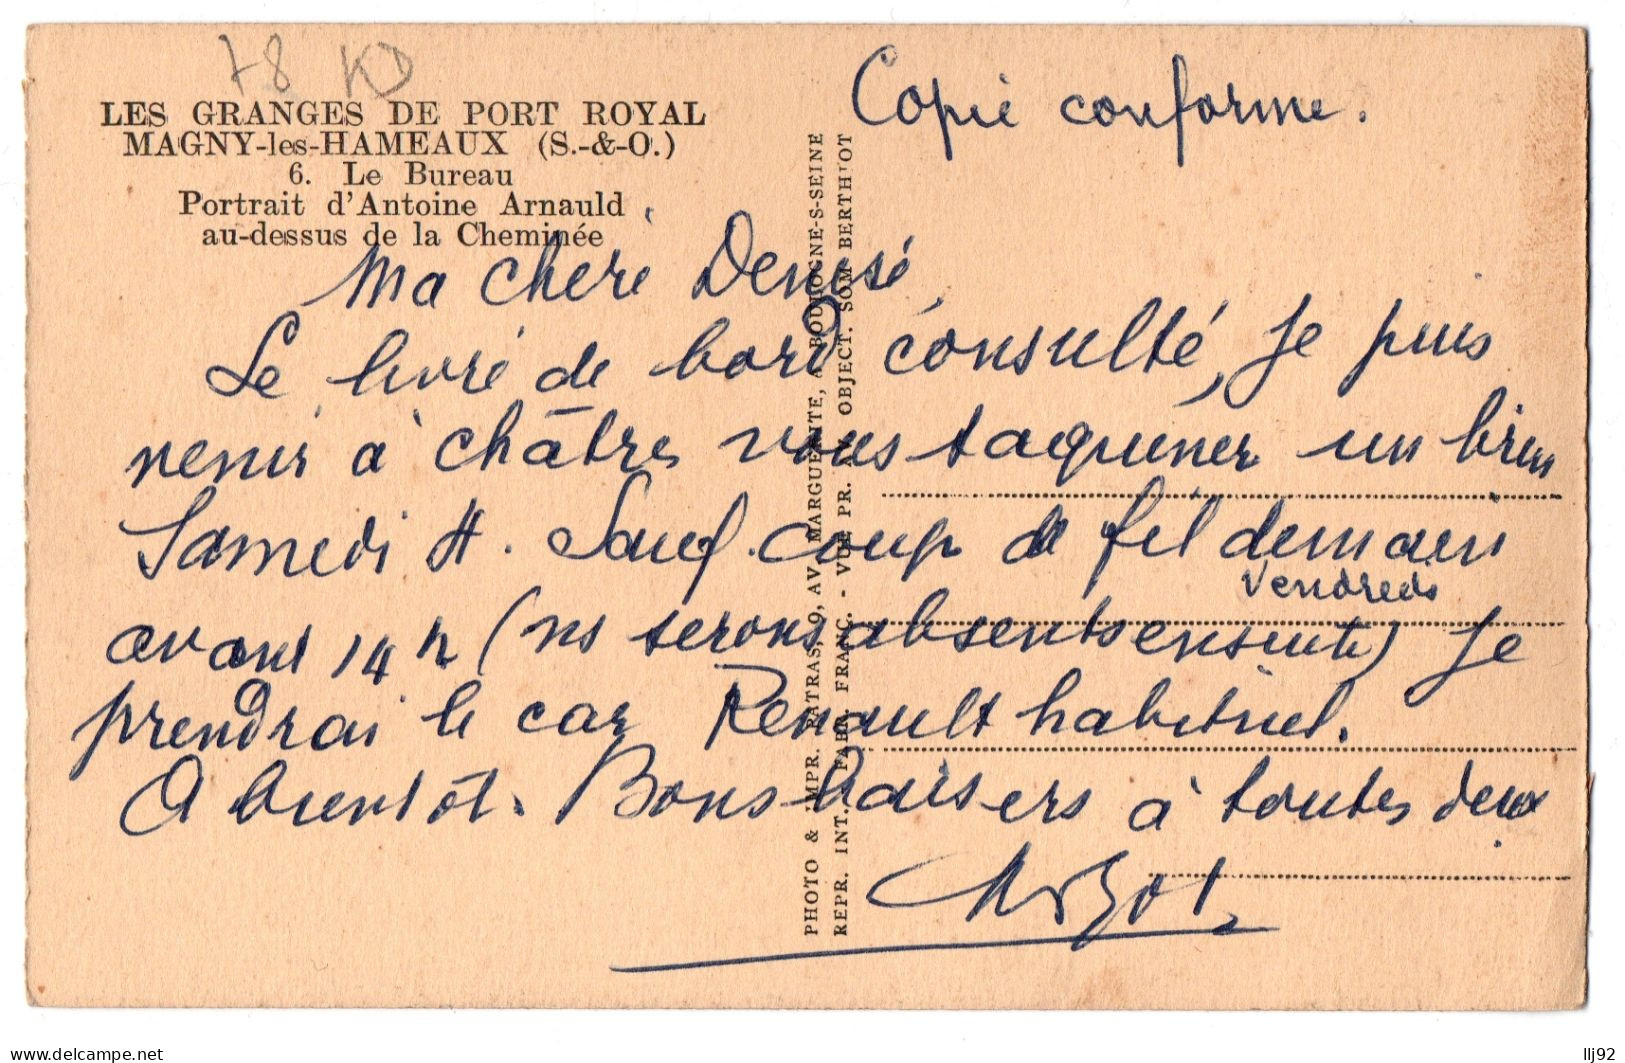 78 KD
LES GRANGES DE PORT ROYAL
MAGNY-les-HAMEAUX (S.-&-O.)
6. Le Bureau
Portrait d'Antoine Arnauld
au-dessus de la Cheminée
Copie conforme.
Ma chère Denise,
Le livre de bord consulté, je puis
venir à châtres vous taquiner un brin
Samedi 4. Sauf coup de fil demain
vendredi
avant 14 h (ns serons absents ensuite) je
prendrai le car Renault habituel.
A bientôt. Bons baisers à toutes deux
PHOTO & IMPR. PATRAS, 9, AV. MARGUERITE, A BOULOGNE-S-SEINE
REPR. INT. - FABR. FRANC. - VUE PR. AV. OBJECT. SOM BERTHIOT
delcampe.net
llj92